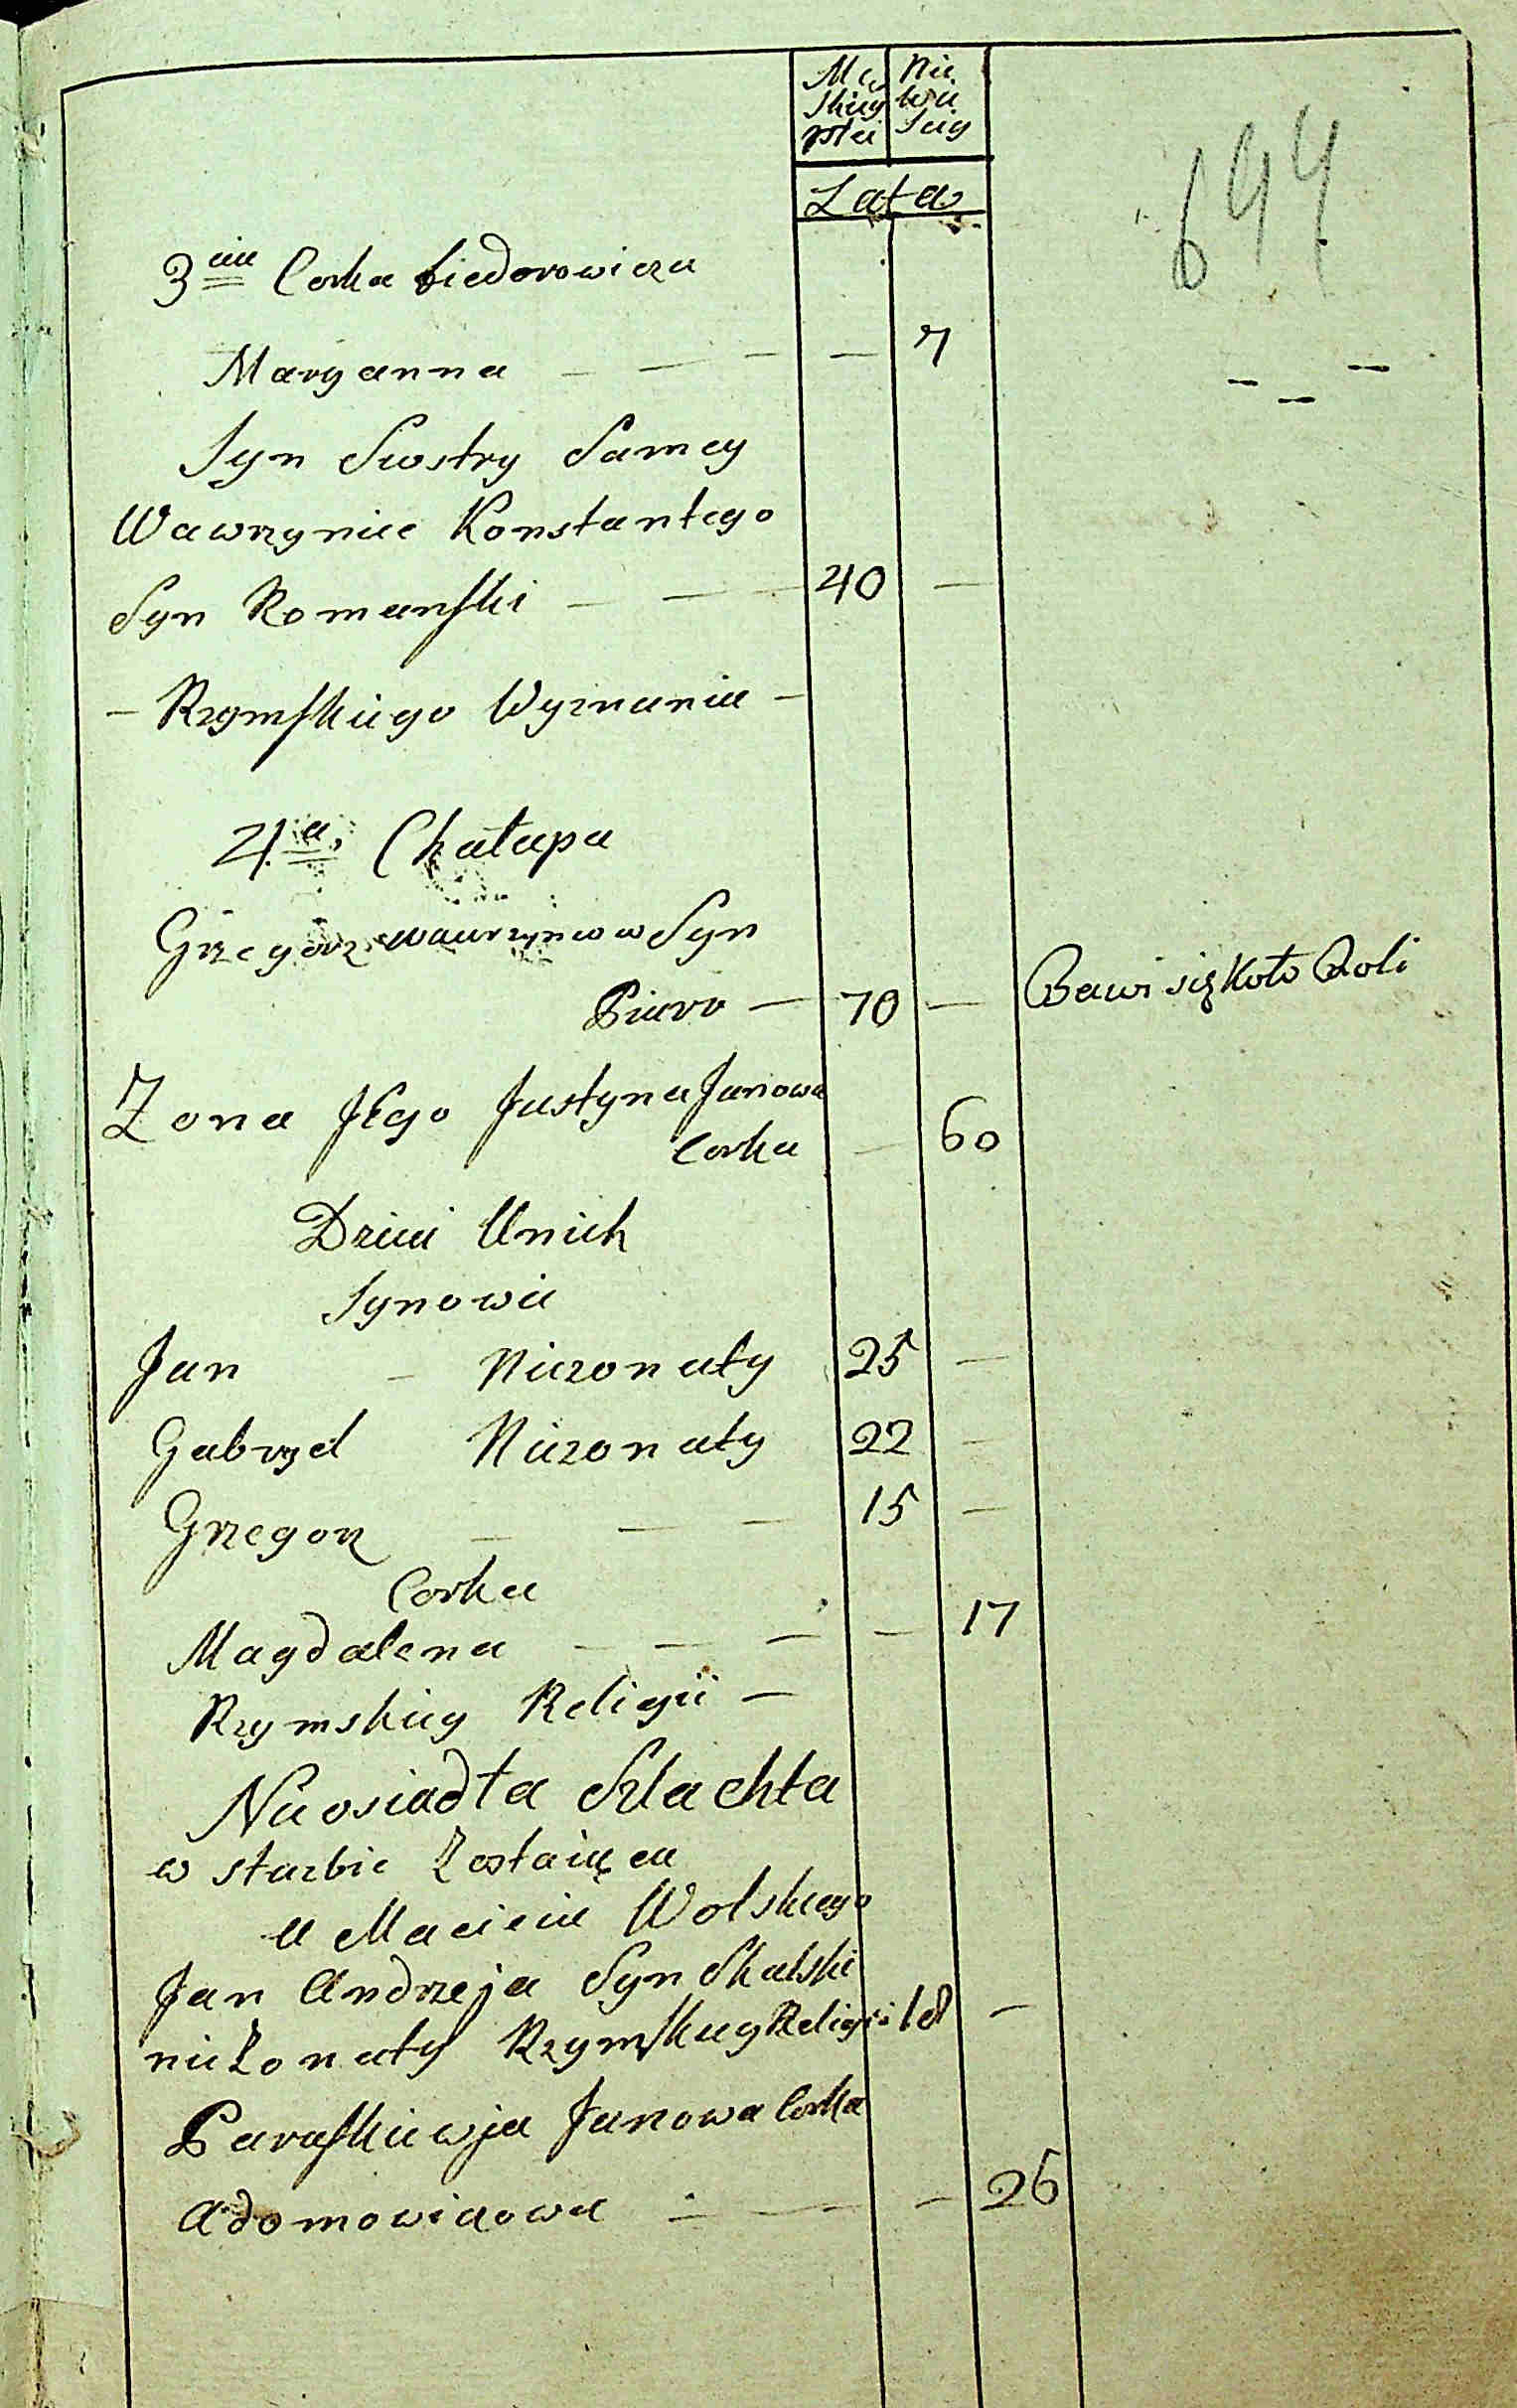 Mę Nie
skiey wie
płci sciey
Lata
694
3cia Corka Fiedorowicza
Maryanna — — — — 7
Syn Siostry Samey
Wawrzyniec Konstantego
Syn Romanski — — — 40 —
— Rzymskiego Wyznania —
4ta Chałupa
Grzegorz Wawrzynców Syn
Piuro — 70 — Bawi się Koło Roli
Zona Jego Justyna Janowa
Corka — 60
Dzieci Unich
Synowie
Jan — Niezonaty 25 —
Gabryel Niezonaty 22 —
Grzegorz — — — 15 —
Corka
Magdalena — — — — 17
Rzymskiey Religii —
Nieosiadła Szlachta
w służbie Zostaiąca
u Macieia Wolskiego
Jan Andrzeja Syn Skalski
nieżonaty Rzymskiey Religii 18 —
Paraskiewja Janowa Corka
Adamowiczowa — — — 26